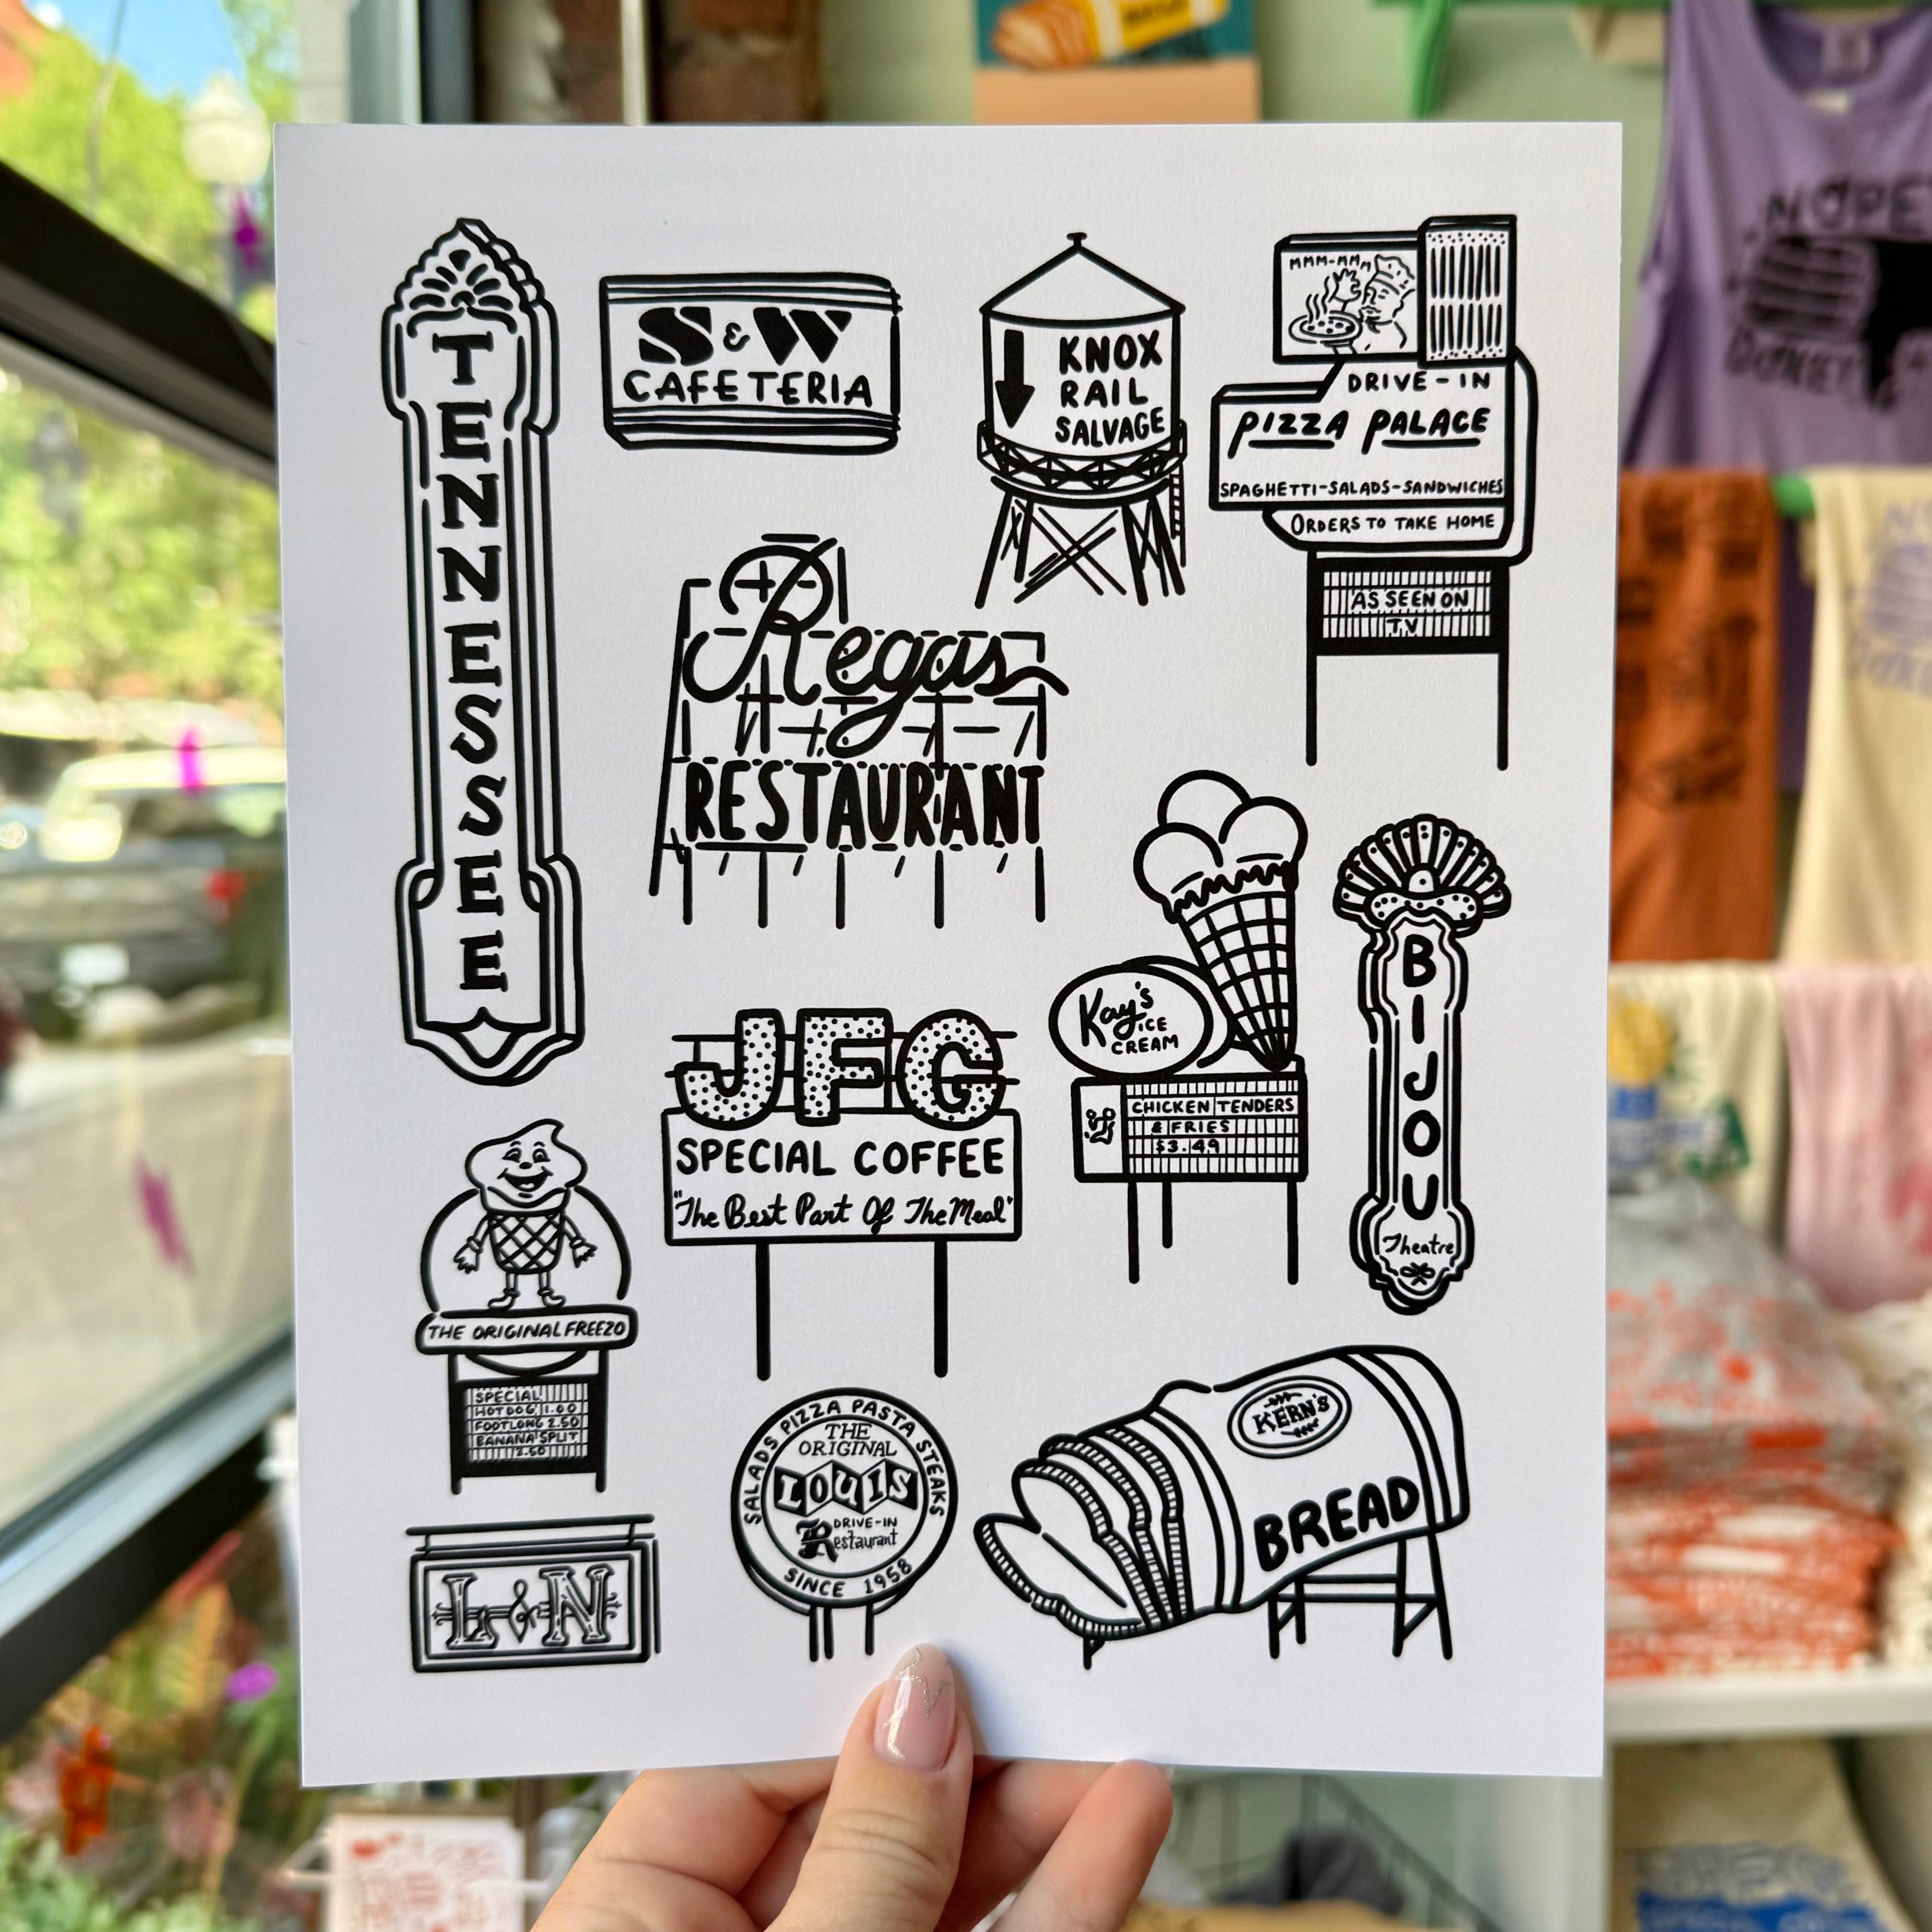 TENNESSEE
S & W
CAFETERIA
KNOX
RAIL
SALVAGE
MMM-MMM
DRIVE-IN
PIZZA PALACE
SPAGHETTI-SALADS-SANDWICHES
ORDERS TO TAKE HOME
AS SEEN ON
TV
Regas
RESTAURANT
Kay's
ICE
CREAM
CHICKEN TENDERS
& FRIES
$3.49
BIJOU
Theatre
JFG
SPECIAL COFFEE
"The Best Part Of The Meal"
THE ORIGINAL FREEZO
SPECIAL
HOTDOG 1.00
FOOTLONG 2.50
BANANA SPLIT
2.50
SALADS PIZZA PASTA STEAKS
THE
ORIGINAL
LOUIS
DRIVE-IN
Restaurant
SINCE 1958
KERN'S
BREAD
L&N